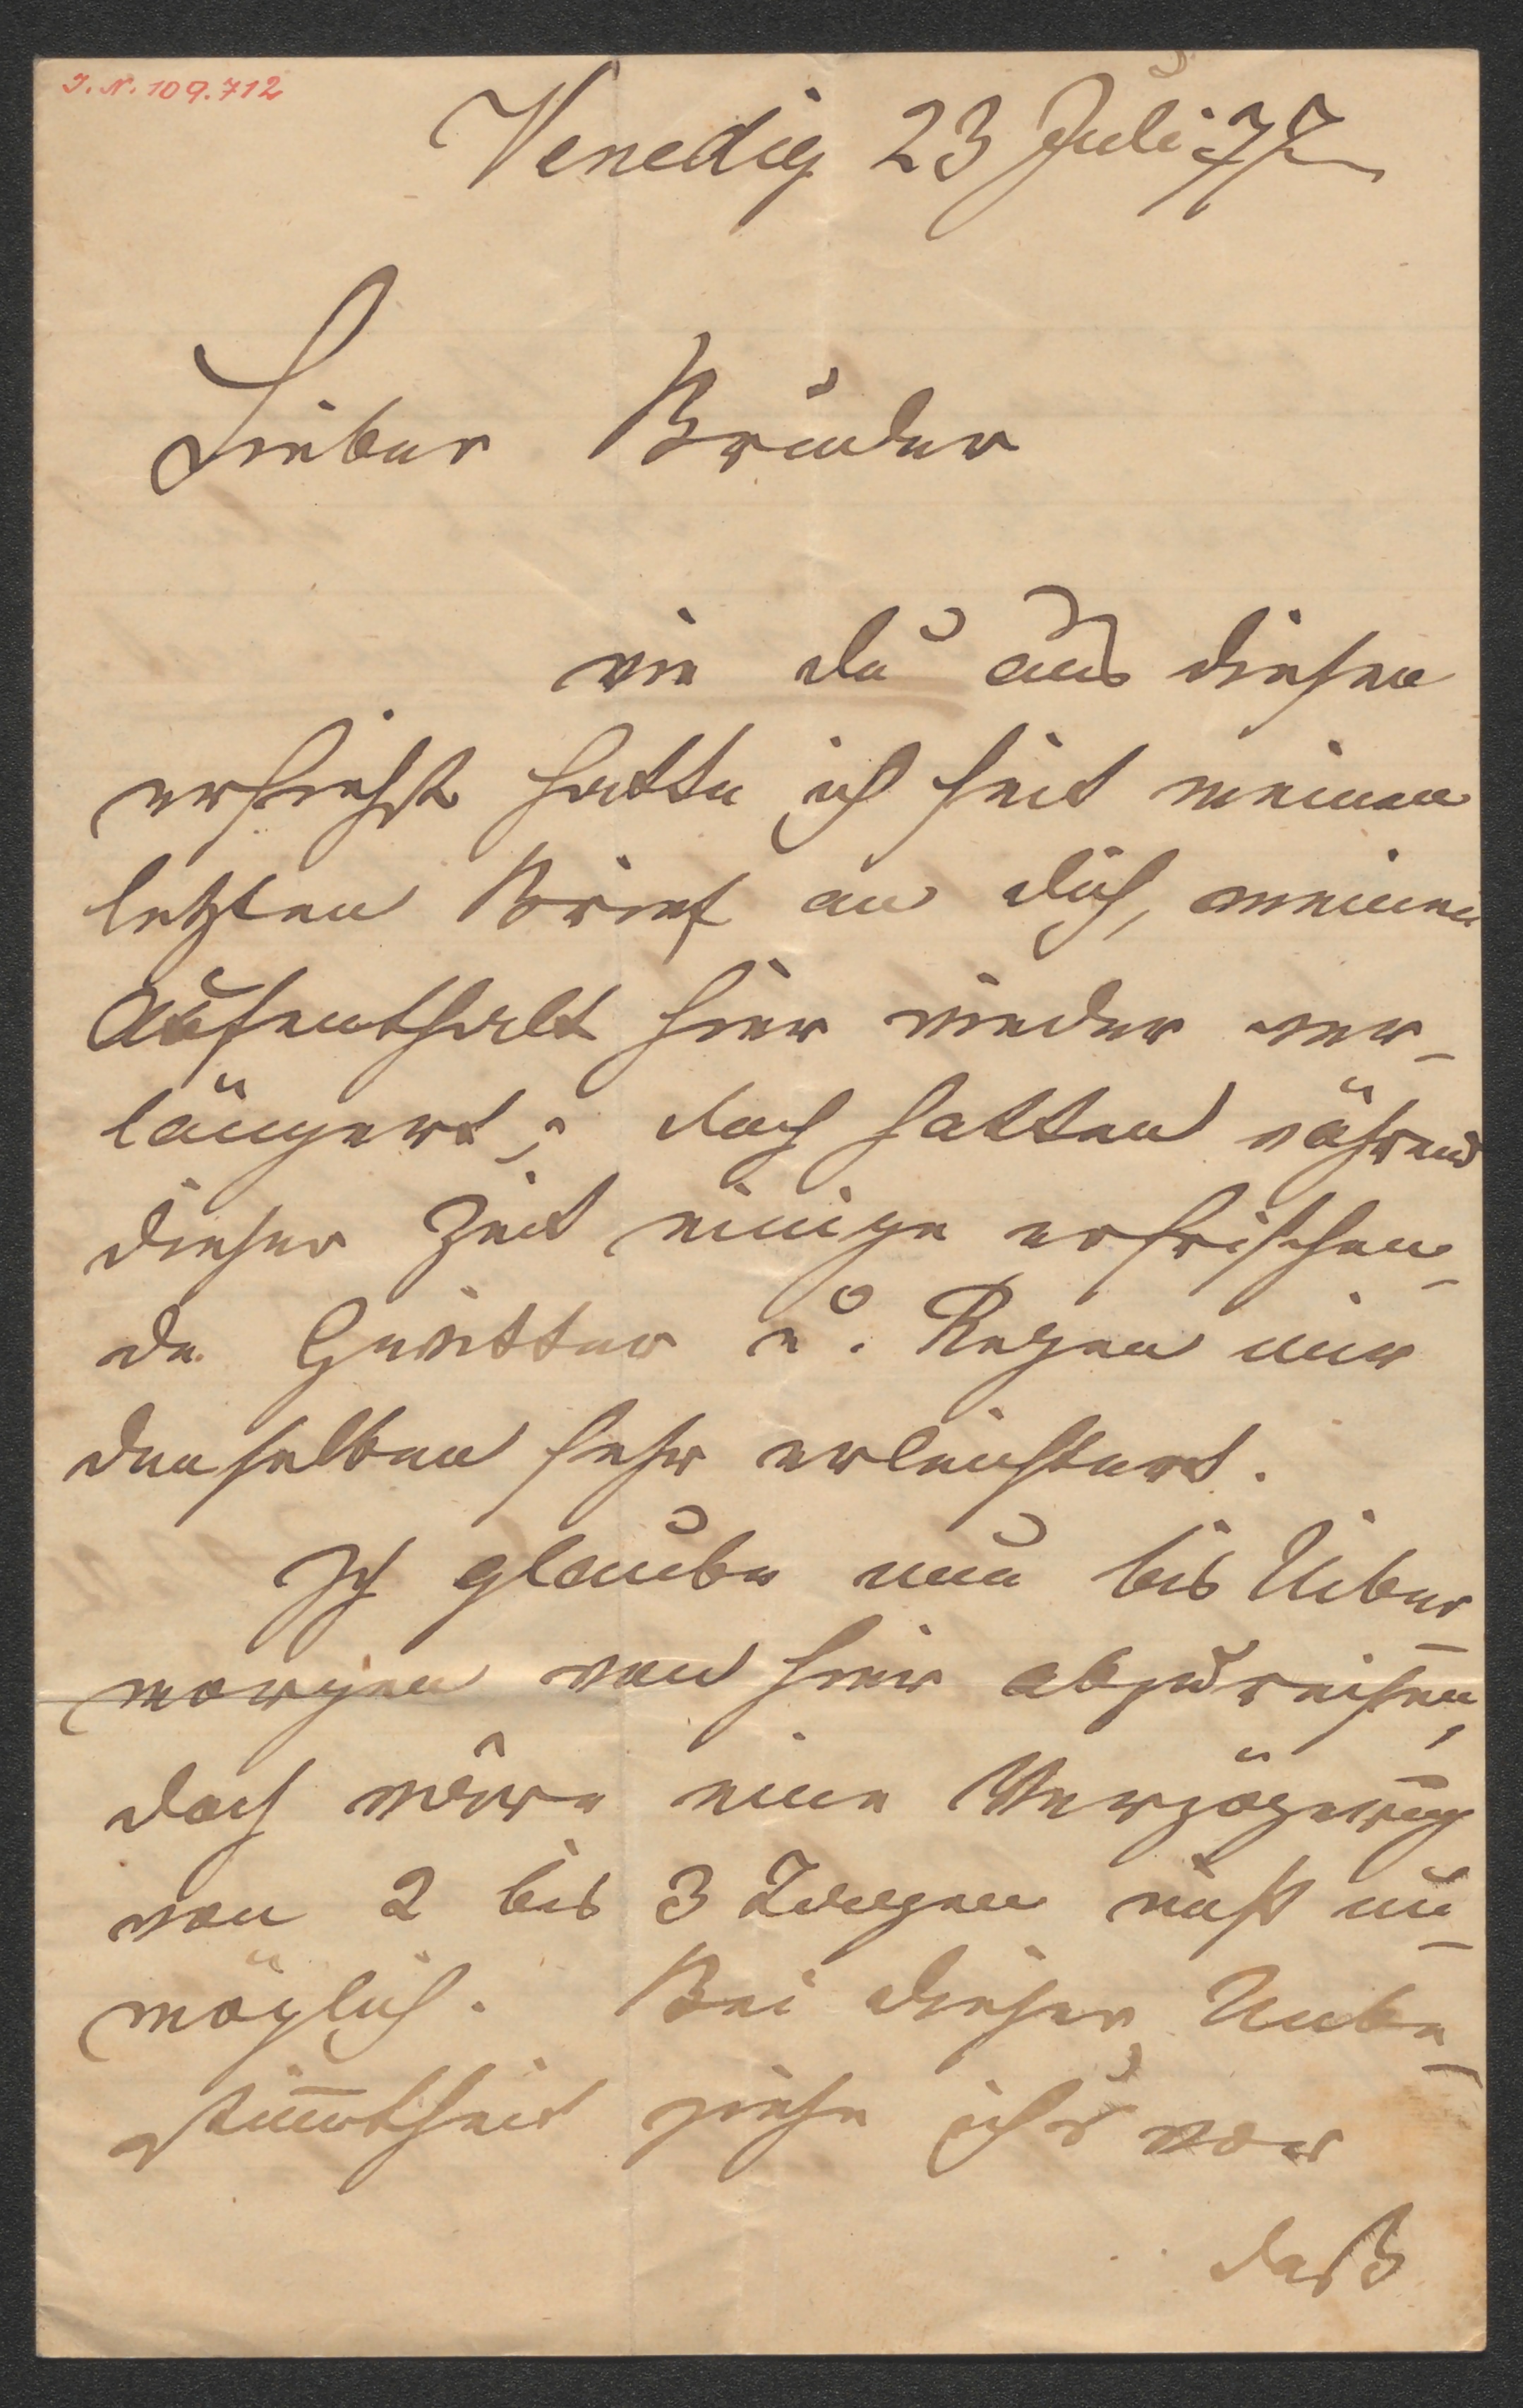 J. N. 109.712
Venedig 23 Juli 77
Lieber Bruder
wie du aus diesen
ersiehst hatte ich seit meinen
letzten Brief an dich, meinen
Aufenthalt hier wieder ver-
längert; doch hatten während
dieser Zeit einige erfrischen-
de Gewitter u. Regen mir
denselben sehr erleichtert.
Ich glaube nun bis Uiber-
morgen von hier abzureisen,
doch wäre eine Verzögerung
von 2 bis 3 Tagen nicht un-
möglich. Bei dieser Unbe-
stim̅theit ziehe ich's vor
daß